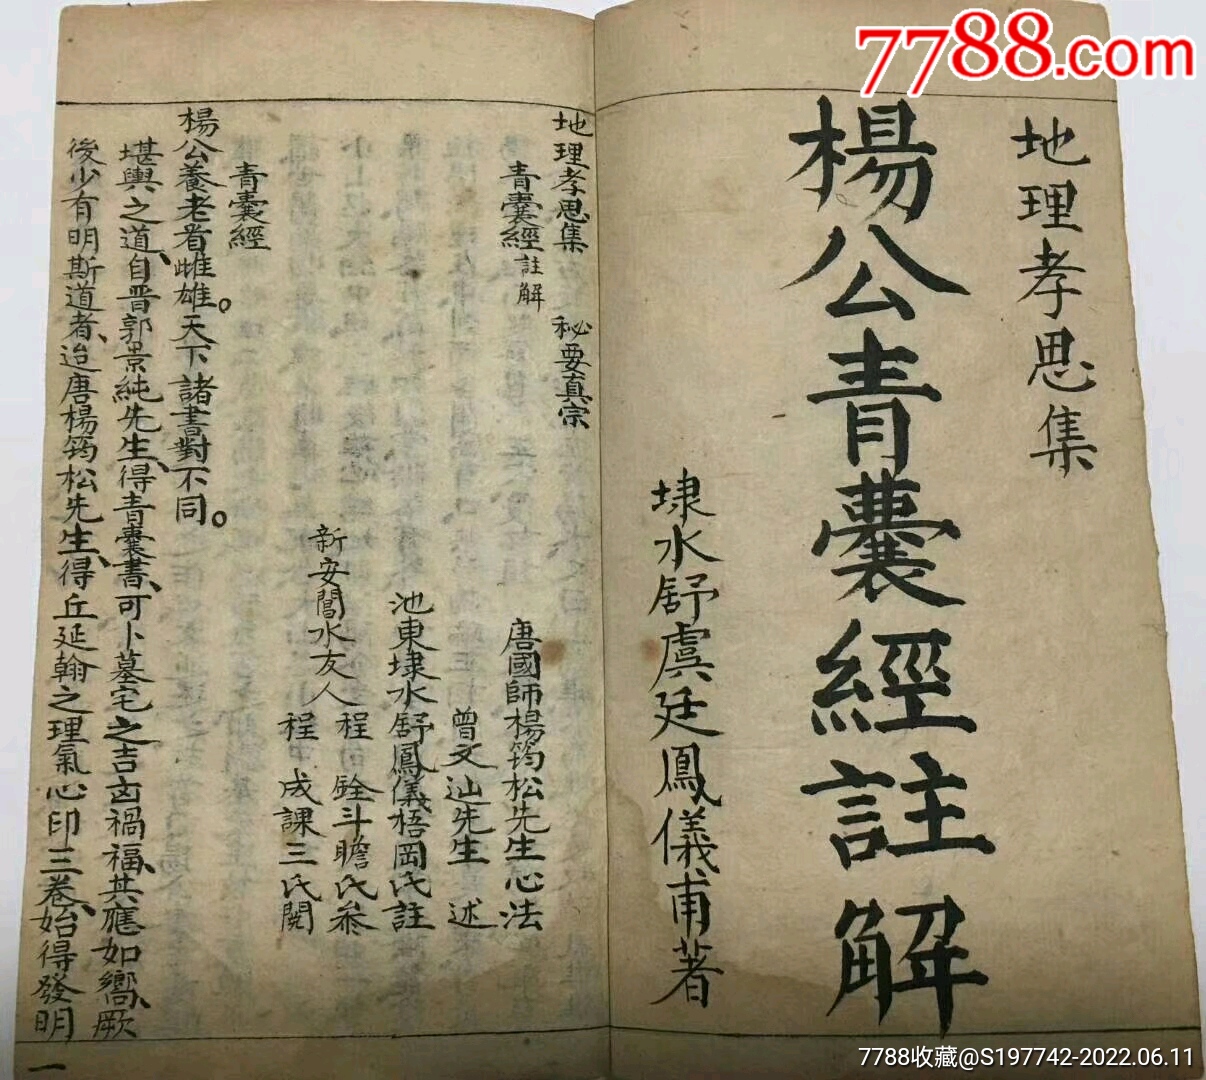 7788.com
地理孝思集
楊公青囊經註解
埭水舒虞廷鳳儀甫著
地理孝思集 秘要真宗
青囊經註解
唐國師楊筠松先生心法
曾文辿先生述
池東埭水舒鳳儀梧岡氏註
新安閶水友人程銓斗瞻氏叅
程成課三氏閱
青囊經
楊公養老看雌雄。天下諸書對不同。
堪輿之道、自晋郭景純先生、得青囊書、可卜墓宅之吉凶禍福、其應如嚮、厥
後少有明斯道者、迨唐楊筠松先生、得丘延翰之理氣心印三卷、始得發明
一
7788收藏@S197742-2022.06.11